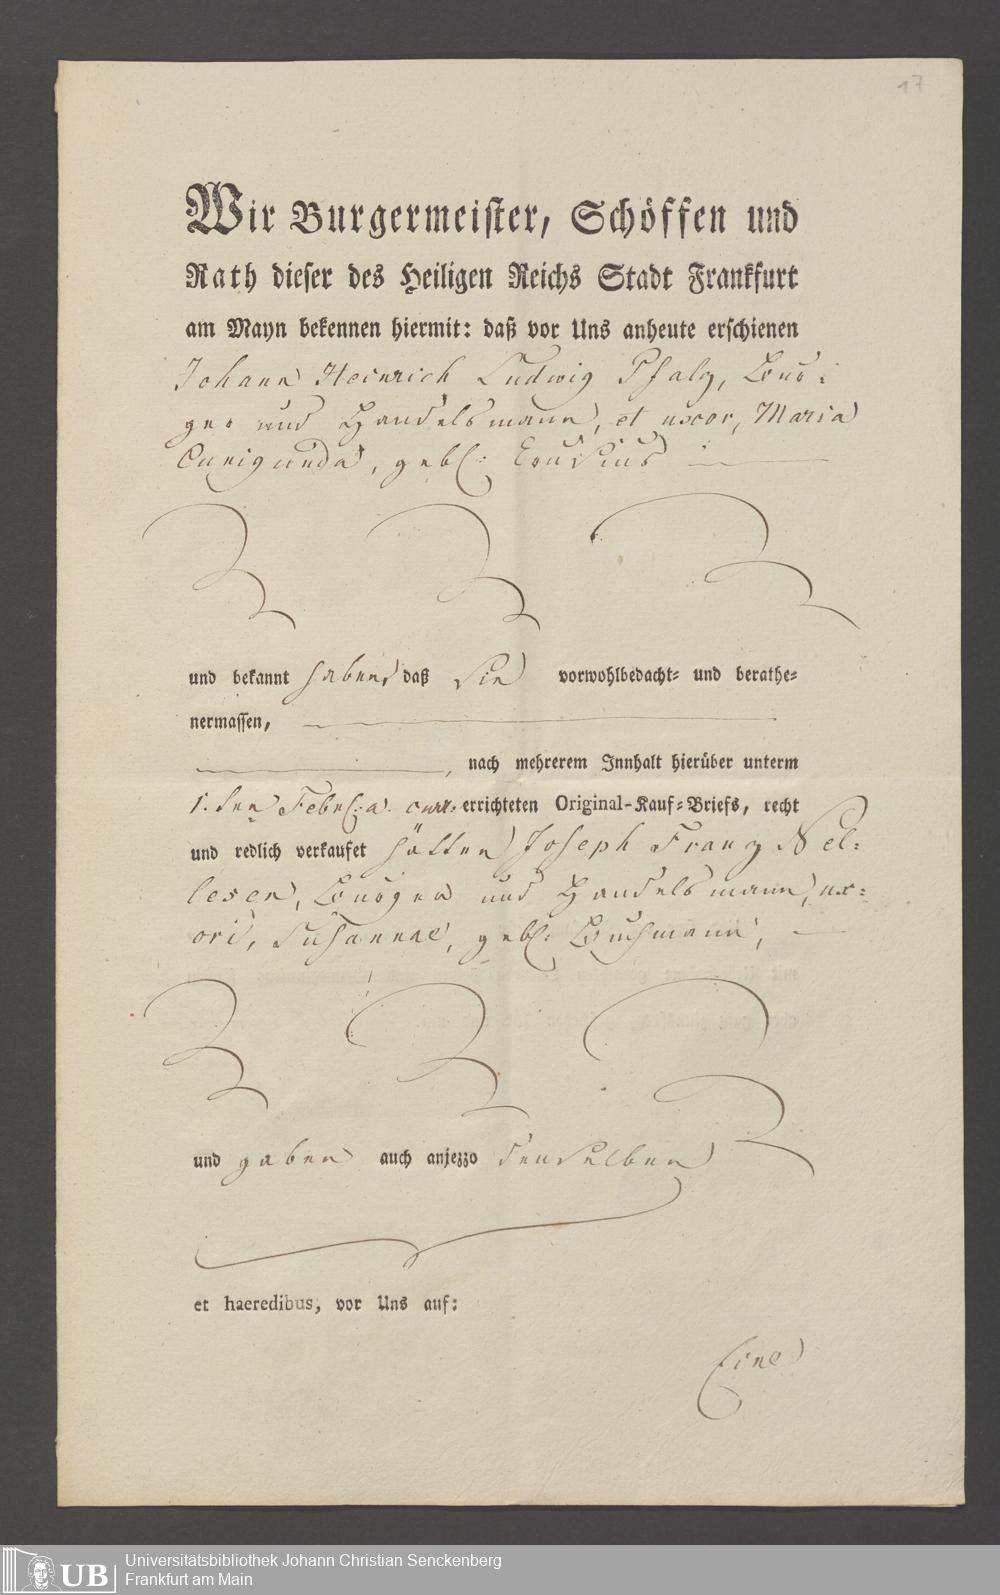 17
Wir Burgermeister, Schöffen und
Rath dieser des Heiligen Reichs Stadt Frankfurt
am Mayn bekennen hiermit: daß vor Uns anheute erschienen
Johann Heinrich Ludwig Pfalz, Bur-
ger und Handelsmann, et uxor, Maria
Cunigunda, gebl:
und bekannt haben, daß Sie vorwohlbedacht- und berathe-
nermassen,
, nach mehrerem Innhalt hierüber unterm
1. den Febr: a. curr. errichteten Original-Kauf-Briefs, recht
und redlich verkaufet hätten Joseph Franz Nel-
lesen, Burger und Handelsmann, ux-
ori, Susannae, gebl: Buchmann,
und gaben auch anjezzo denselben
et haeredibus, vor Uns auf:
Eine
UB
Universitätsbibliothek Johann Christian Senckenberg
Frankfurt am Main